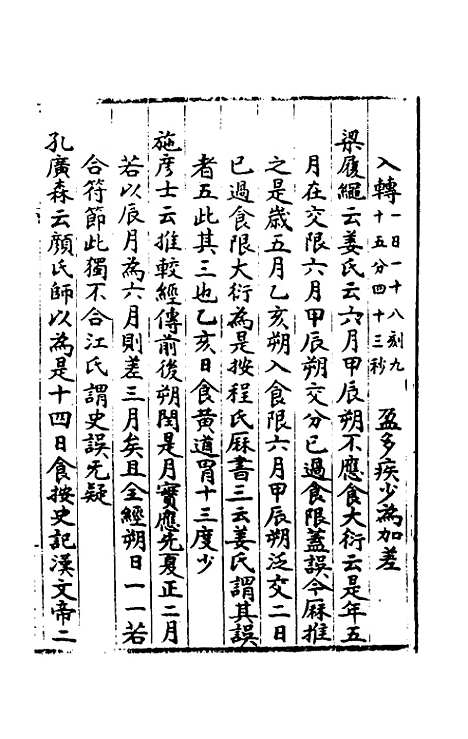 入轉一日一十八刻九十五分四十三秒　盈多疾少為加差
梁履繩云姜氏云六月甲辰朔不應食大衍云是年五
月在交限六月甲辰朔交分已過食限蓋誤今厤推
之是歲五月乙亥朔入食限六月甲辰朔泛交二日
已過食限大衍為是按程氏厤書三云姜氏謂其誤
者五此其三也乙亥日食黄道胃十三度少
施彦士云推較經傳前後朔閏是月實應先夏正二月
若以辰月為六月則差三月矣且全經朔日一一若
合符節此獨不合江氏謂史誤无疑
孔廣森云顔氏師以為是十四日食按史記漢文帝二